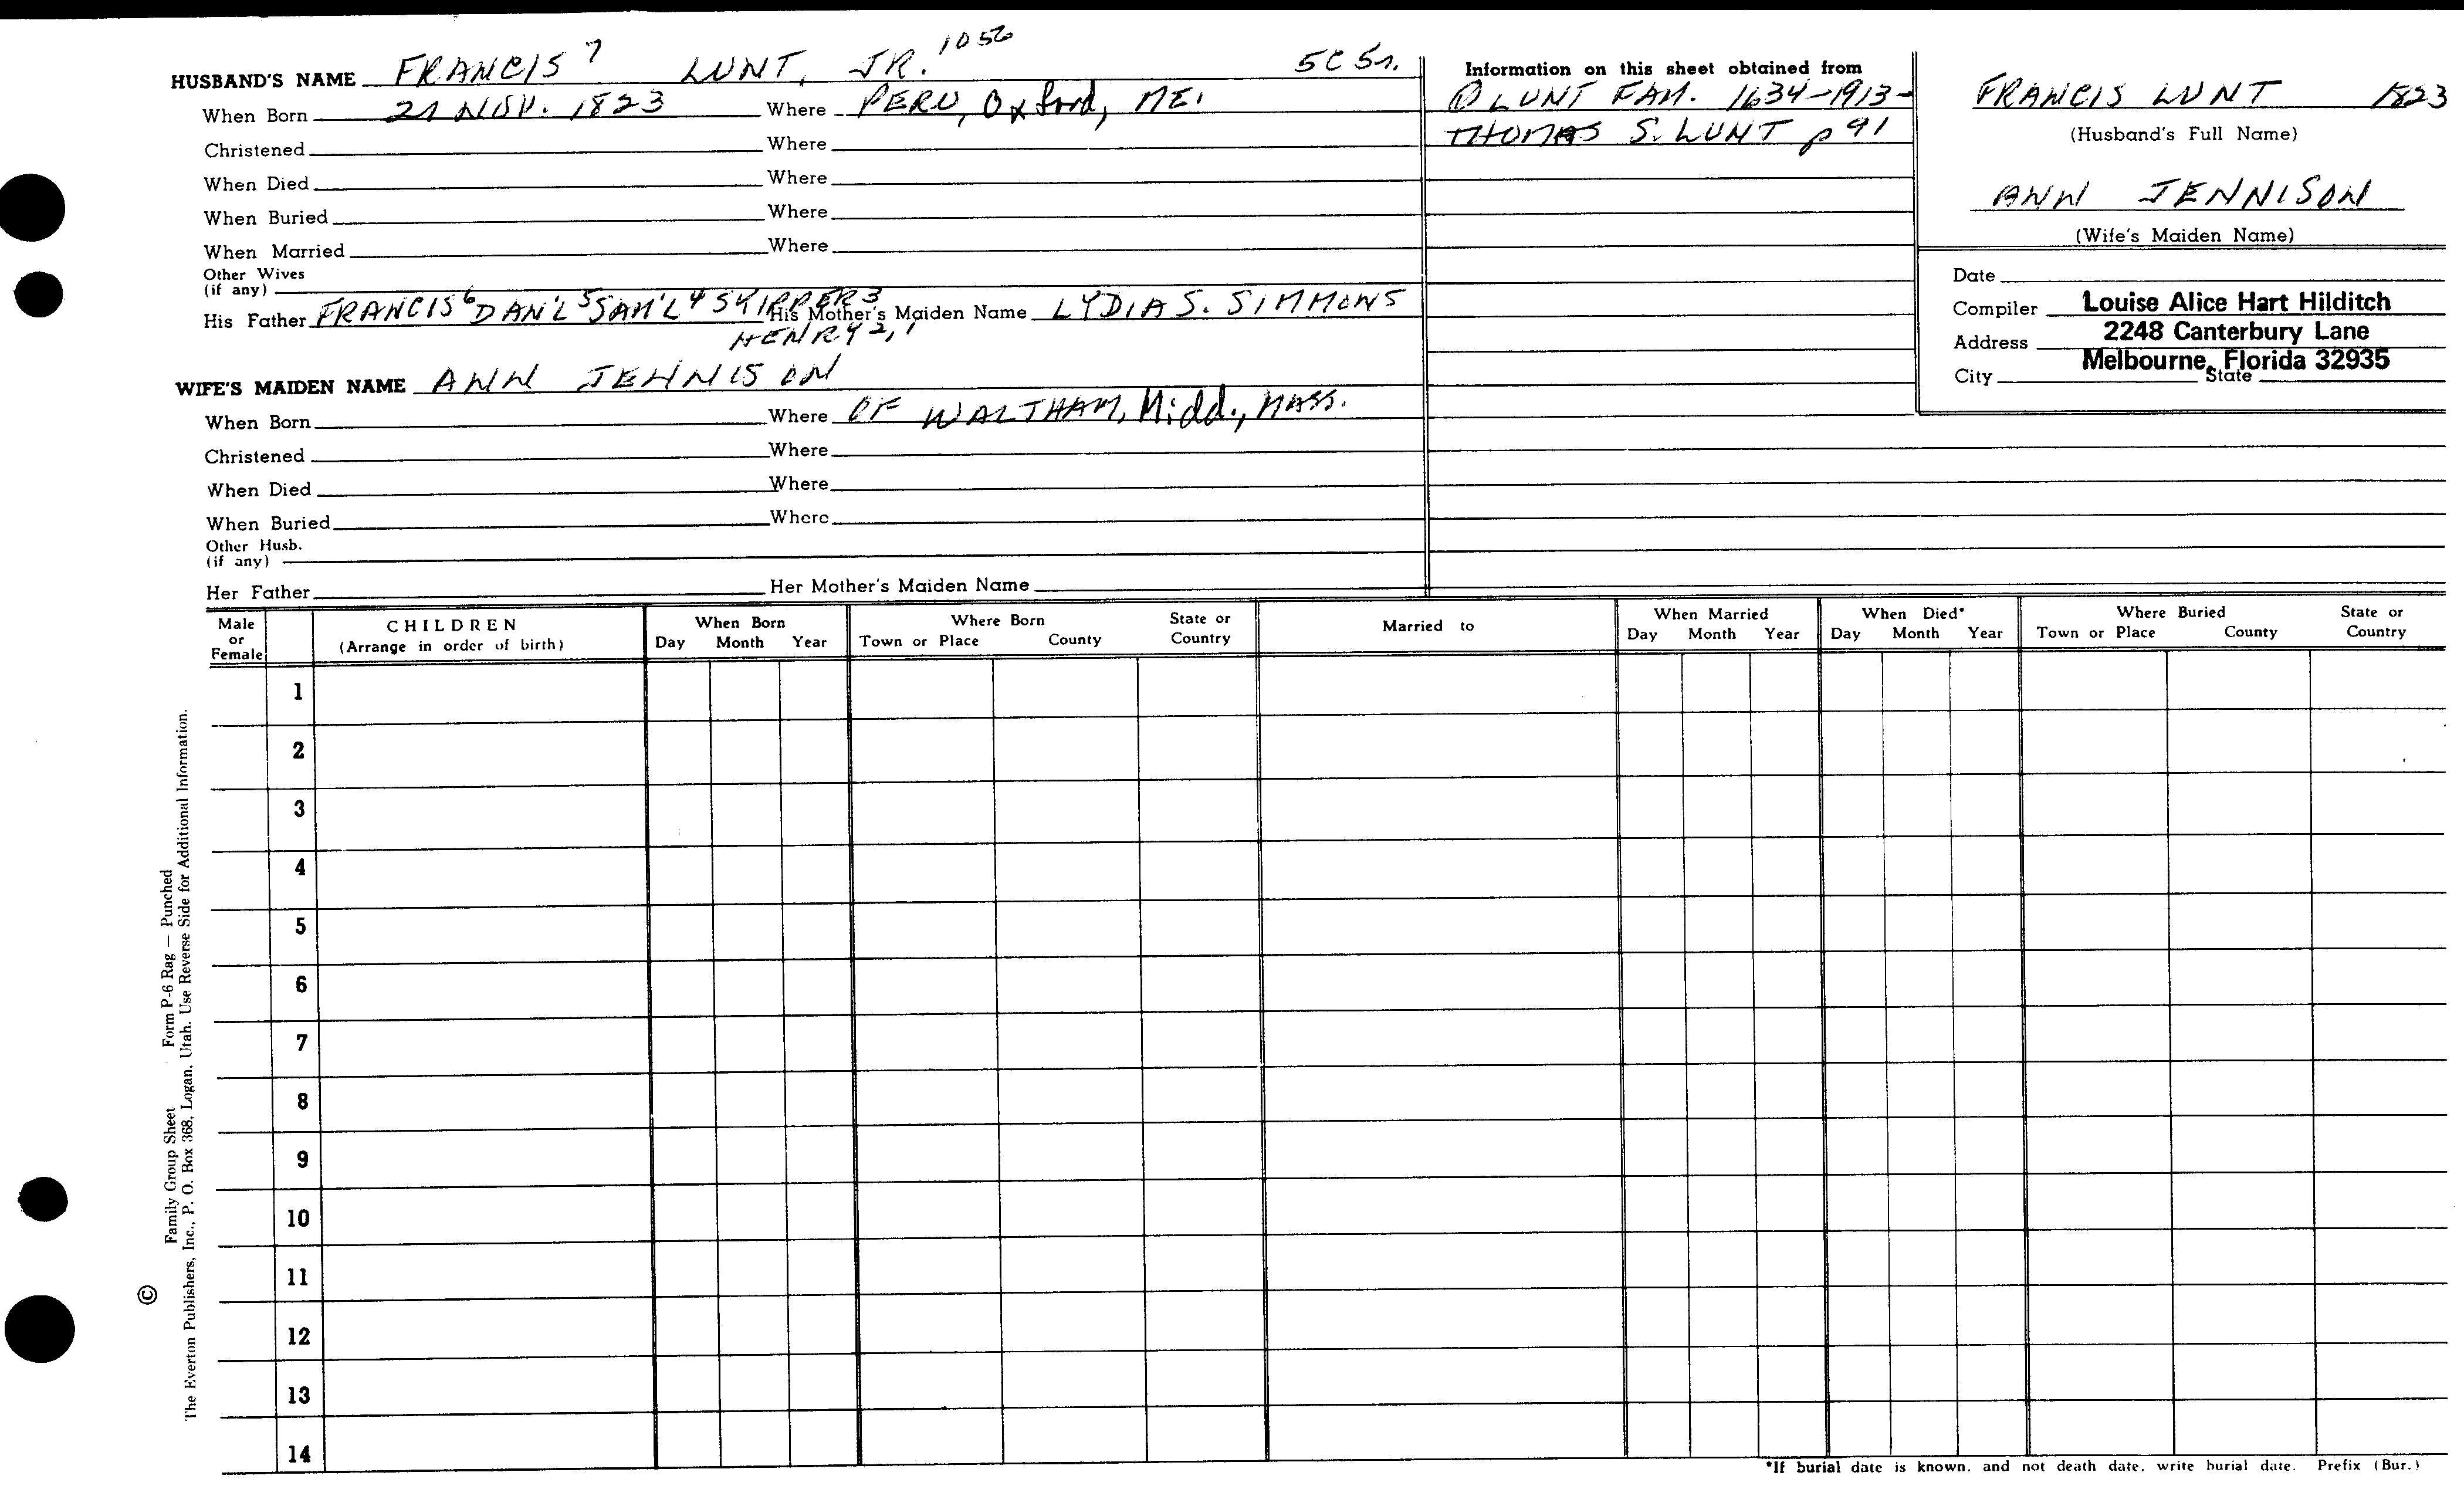 HUSBAND'S NAME FRANCIS 7 LUNT, JR. 1056 5C 5r.
When Born 21 NOV. 1823 Where PERU, Oxford, ME.
Christened Where
When Died Where
When Buried Where
When Married Where
Other Wives
(if any)
His Father FRANCIS 6 DAN'L 5 SAM'L 4 SKIPPER 3 His Mother's Maiden Name LYDIA S. SIMMONS
HENRY 2, 1
WIFE'S MAIDEN NAME ANN JENNISON
When Born Where OF WALTHAM, Midd., MASS.
Christened Where
When Died Where
When Buried Where
Other Husb.
(if any)
Her Father Her Mother's Maiden Name
Information on this sheet obtained from
LUNT FAM. 1634-1913-
THOMAS S. LUNT p 91
FRANCIS LUNT 1823
(Husband's Full Name)
ANN JENNISON
(Wife's Maiden Name)
Date
Compiler Louise Alice Hart Hilditch
Address 2248 Canterbury Lane
Melbourne, Florida 32935
City State
Male or Female CHILDREN (Arrange in order of birth) When Born Day Month Year Where Born Town or Place County State or Country Married to When Married Day Month Year When Died* Day Month Year Where Buried Town or Place County State or Country
1
2
3
4
5
6
7
8
9
10
11
12
13
14
*If burial date is known, and not death date, write burial date. Prefix (Bur.)
© Family Group Sheet Form P-6 Rag — Punched
The Everton Publishers, Inc., P. O. Box 368, Logan, Utah. Use Reverse Side for Additional Information.